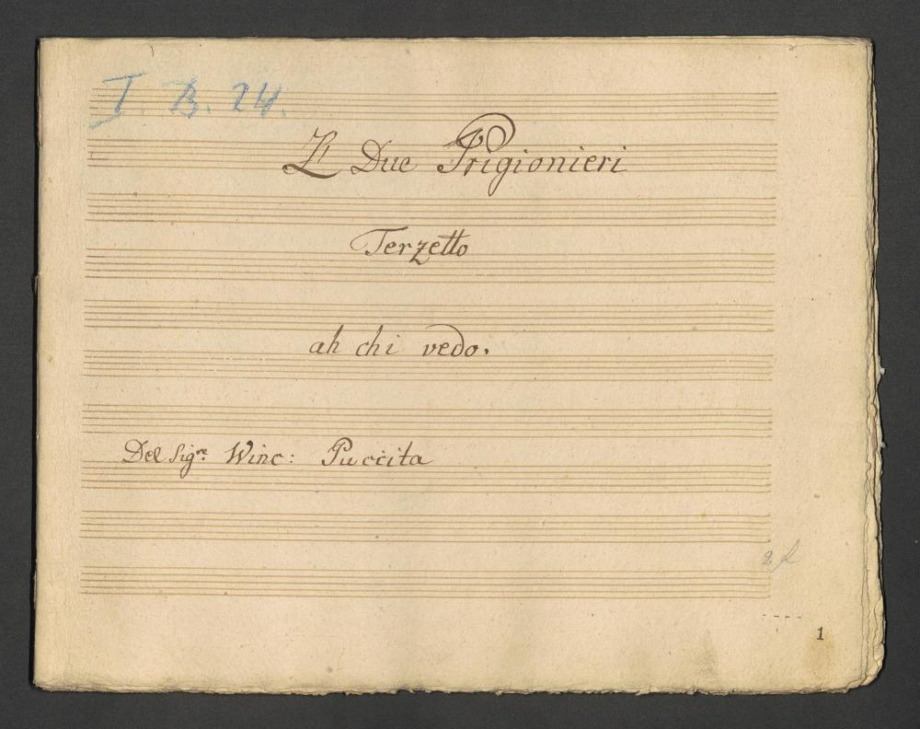 I. B. 24.
I Due Prigionieri
Terzetto
ah chi vedo.
Del Sig.re Winc: Puccita
1